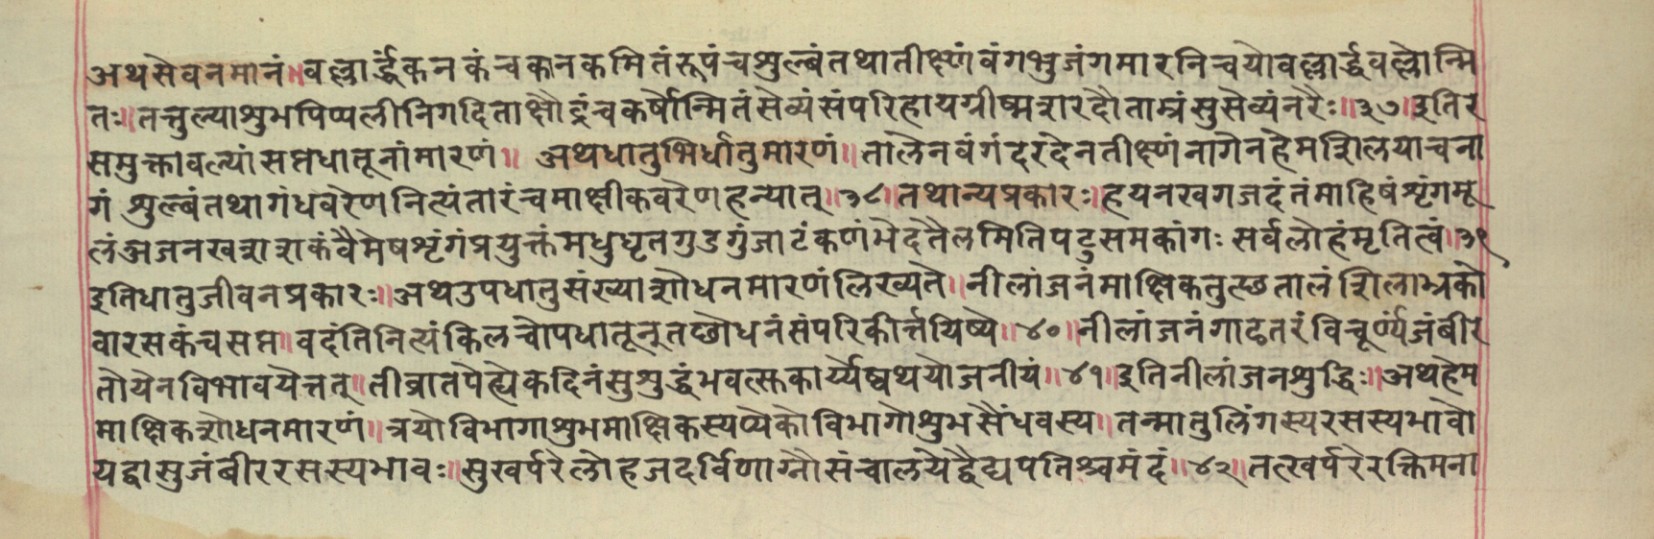 अथसेवनमानं॥वल्लार्द्धंकनकंचकनकमितंरूपंचशुल्बंतथातीक्ष्णंवंगभुजंगमारनिचयोवल्लार्द्धवल्लोन्मि
तः॥तत्तुल्याशुभपिप्पलीनिगदिताक्षौद्रंचकर्षोन्मितंसेव्यंसंपरिहायग्रीष्मशरदौताम्रंसुसेव्यंनरैः॥३७॥इतिर
समुक्तावल्यांसप्तधातूनांमारणं॥ अथधातुभिर्धातुमारणं॥तालेनवंगंदरदेनतीक्ष्णंनागेनहेमशिलयाचना
गं शुल्बंतथागंधवरेणनित्यंतारंचमाक्षीकवरेणहन्यात्॥३८॥तथान्यप्रकारः॥हयनखगजदंतंमाहिषंशृंगमू
लंअजनखशशकंवैमेषशृंगंप्रयुक्तंमधुघृतगुडगुंजाटंकणंभेदतैलमितिपटुसमकांगः सर्वलोहंमृतित्वं॥३९
इतिधातुजीवनप्रकारः॥अथउपधातुसंख्याशोधनमारणंलिख्यते॥नीलांजनंमाक्षिकतुत्छतालंशिलाभ्रको
वारसकंचसप्त॥वदंतिनित्यंकिलचोपधातून्तछोधनंसंपरिकीर्त्तयिष्ये॥४०॥नीलांजनंगाढतरंविचूर्ण्यजंबीर
तोयेनविभावयेत्तत्॥तीव्रातपेत्द्येकदिनंसुशुद्धंभवत्स्तकार्य्येष्वथयोजनीयं॥४१॥इतिनीलांजनशुद्धिः॥अथहेम
माक्षिकशोधनमारणं॥त्रयोविभागाशुभमाक्षिकस्यप्येकोविभागोशुभसैंधवस्य॥तन्मातुलिंगस्यरसस्यभावो
यद्वासुजंबीररसस्यभावः॥सुखर्परेलोहजदर्विणाग्नौसंचालयेद्वैद्यपतिश्चमंदं॥४२॥तत्खर्परेरक्तिमना